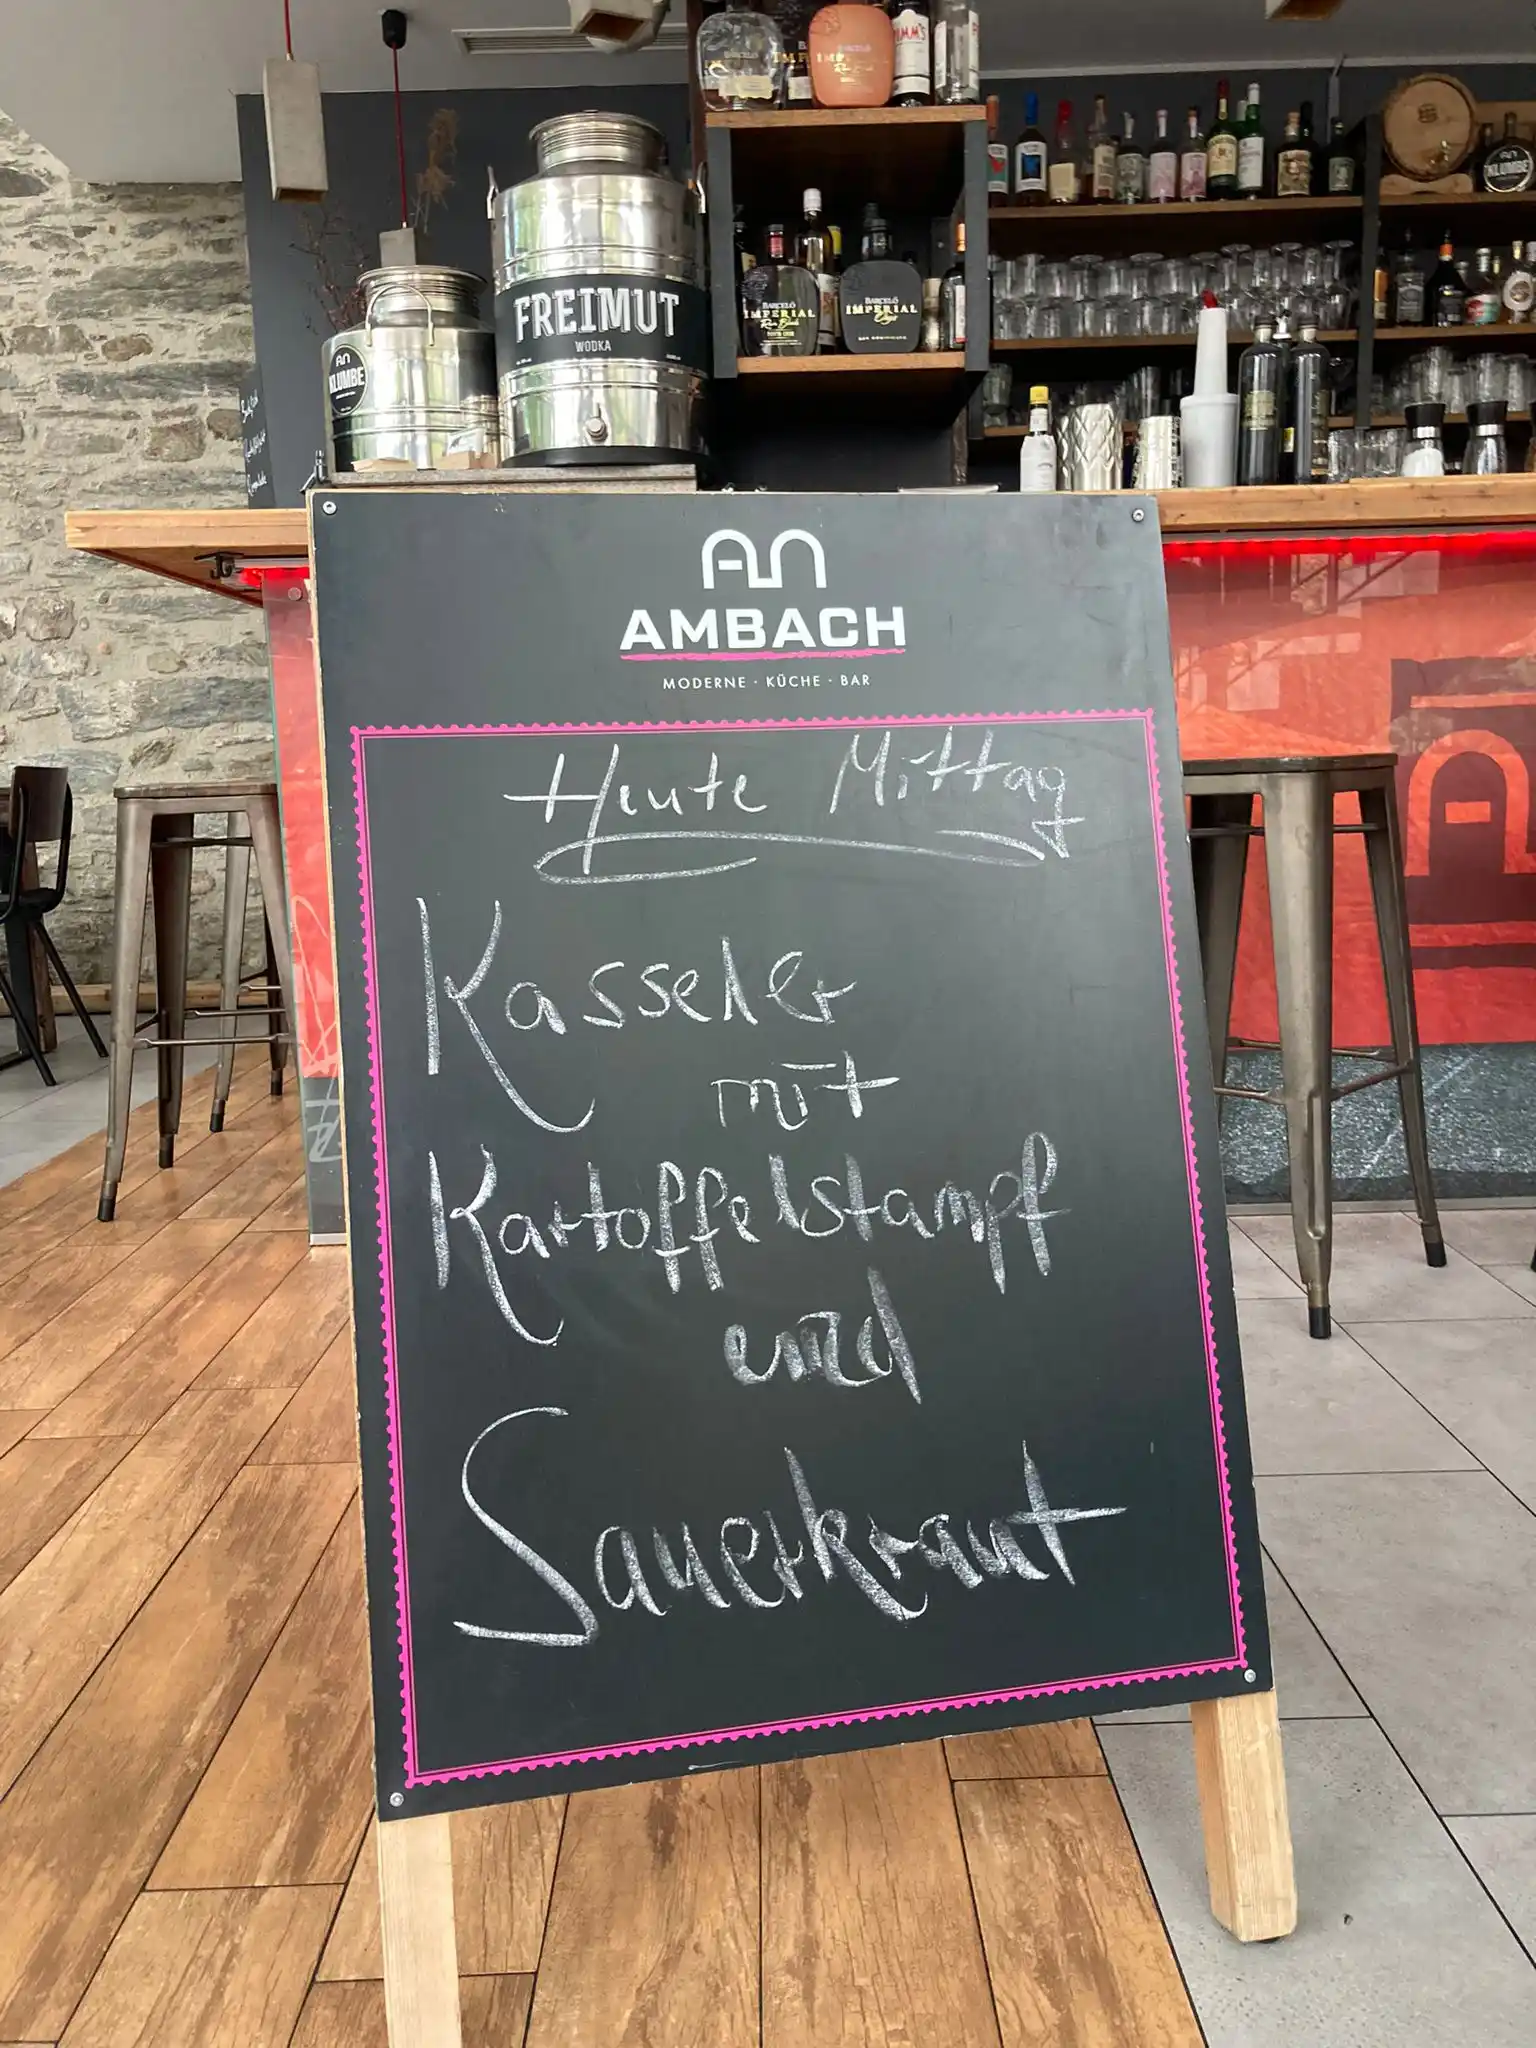 BARCELÓ
IMPERIAL
FREIMUT
WODKA
AN
KLUMBE
BARCELÓ
IMPERIAL
BARCELÓ
IMPERIAL
Onyx
KLUMBE
AN
AMBACH
MODERNE · KÜCHE · BAR
Heute Mittag
Kasseler
mit
Kartoffelstampf
und
Sauerkraut